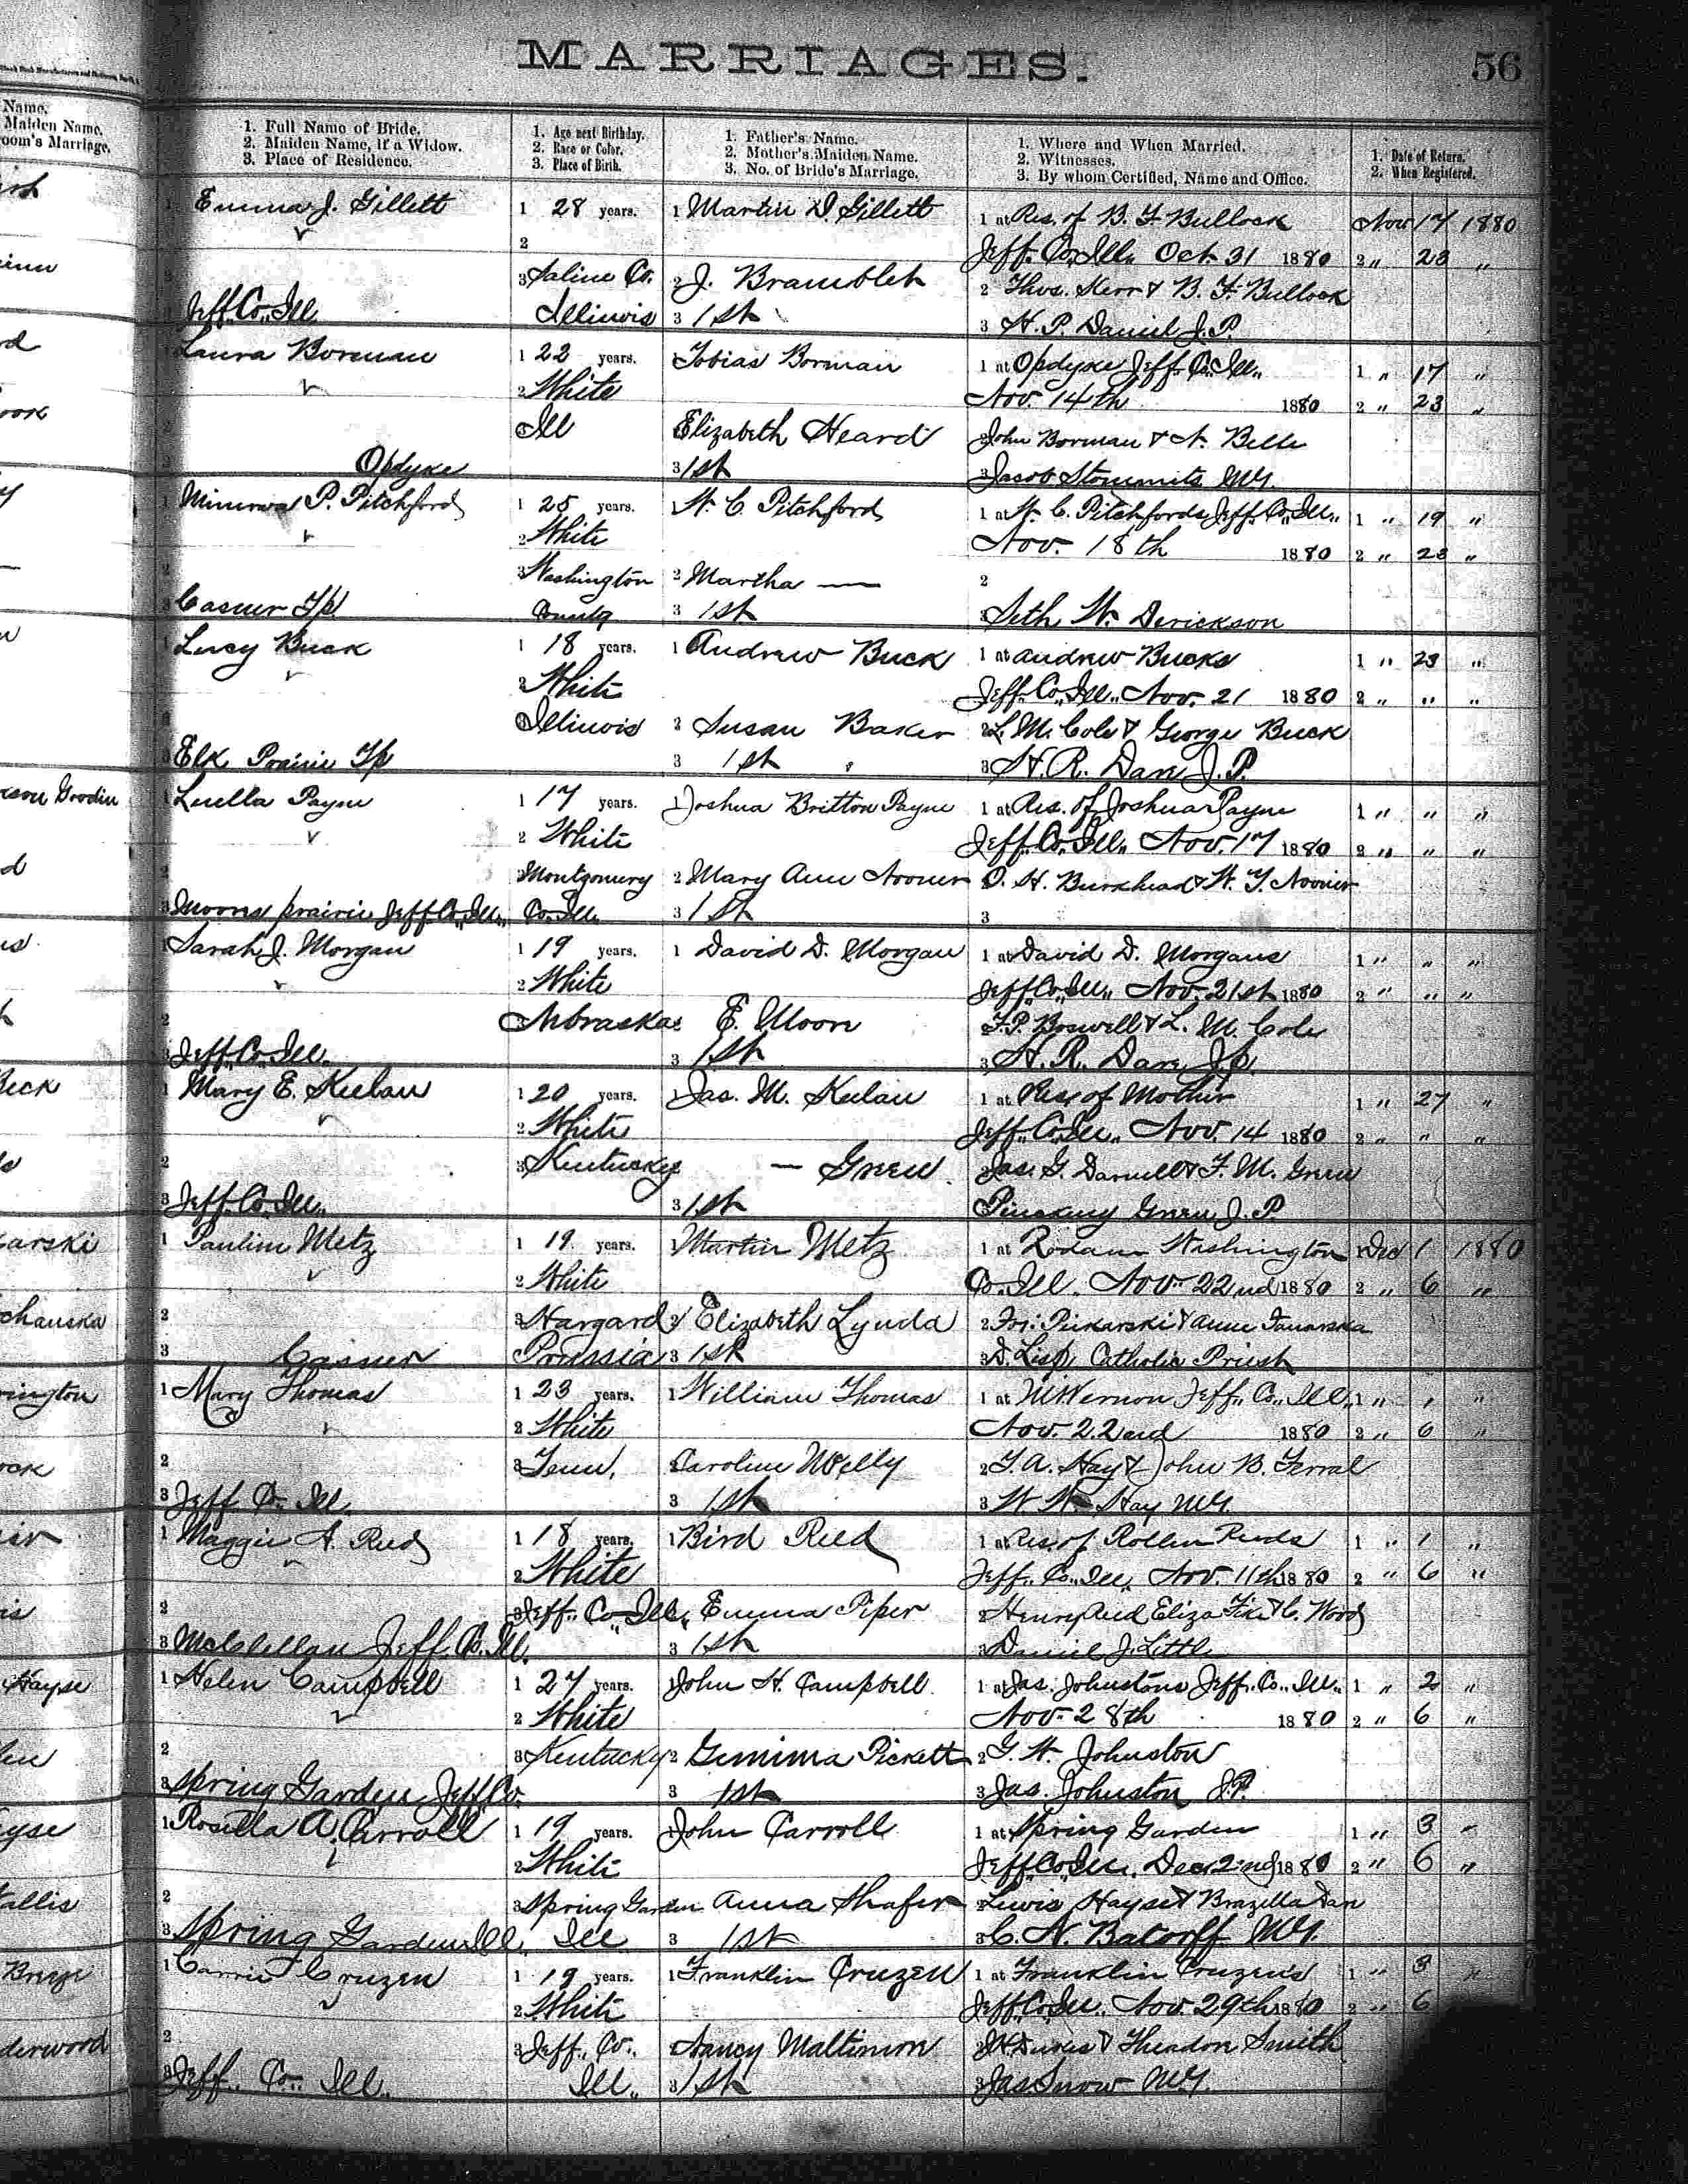 MARRIAGES.
56
Name,
Maiden Name,
oom's Marriage.
1. Full Name of Bride.
2. Maiden Name, if a Widow.
3. Place of Residence.
1. Age next Birthday.
2. Race or Color.
3. Place of Birth.
1. Father's Name.
2. Mother's Maiden Name.
3. No. of Bride's Marriage.
1. Where and When Married.
2. Witnesses.
3. By whom Certified, Name and Office.
1. Date of Return.
2. When Registered.
1 Emma J. Gillett 1 28 years. 1 Martin D. Gillett 1 at Res. of B. F. Bullock Nov 17 1880
2 Jeff. Co. Ill. Oct. 31 1880 2 " 23 "
3 Saline Co. 2 J. Bramblet 2 Thos. Kerr & B. F. Bullock
Jeff. Co. Ill. Illinois 3 1st 3 H. P. Daniel J. P.
Laura Borman 1 22 years. Tobias Borman 1 at Opdyke Jeff. Co. Ill. 1 " 17 "
2 White Nov. 14th 1880 2 " 23 "
Ill Elizabeth Heard John Borman & N. Belle
Opdyke 3 1st 3 Jacob MG.
1 Minerva P. Pitchford 1 25 years. W. C. Pitchford 1 at W. C. Pitchfords Jeff. Co. Ill. 1 " 19 "
2 White Nov. 18th 1880 2 " 23 "
2 3 Washington 2 Martha — 2
3 Casner Tp County 3 1st 3 Seth W. Derickson
1 Lucy Buck 1 18 years. 1 Andrew Buck 1 at Andrew Bucks 1 " 23 "
2 White Jeff. Co. Ill. Nov. 21 1880 2 " " "
3 Illinois 2 Susan Baker 2 L. M. Cole & George Buck
3 Elk Prairie Tp 3 1st 3 H. R. Dare J. P.
1 Luella Payne 1 17 years. 1 Joshua Britton Payne 1 at Res. of Joshua Payne 1 " " "
2 White Jeff. Co. Ill. Nov. 17 1880 2 " " "
2 Montgomery 2 Mary Ann Nooner O. H. Burkhead & W. Y. Nooner
3 Moores prairie Jeff. Co. Ill. Co. Ill. 3 1st 3
Sarah J. Morgan 1 19 years. 1 David D. Morgan 1 at David D. Morgans 1 " " "
2 White Jeff. Co. Ill. Nov. 21st 1880 2 " " "
2 Nebraska E. Moore F. P. Boswell & L. M. Cole
3 Jeff. Co. Ill. 3 1st 3 H. R. Dare J. P.
1 Mary E. Keelan 1 20 years. 1 Jas. M. Keelan 1 at Res. of Mother 1 " 27 "
2 White Jeff. Co. Ill. Nov. 14 1880 2 " " "
2 3 Kentucky — Green Jas. G. Darnell & F. M. Green
3 Jeff. Co. Ill. 3 1st Pinckney Green J. P.
1 Pauline Metz 1 19 years. 1 Martin Metz 1 at Washington 1 Dec 1 1880
2 White Co. Ill. Nov. 22nd 1880 2 " 6 "
2 3 Hargard 2 Elizabeth Lynda 2 Jos. Piekarski & Anne
3 Casner Prussia 3 1st 3 Catholic Priest
1 Mary Thomas 1 23 years. 1 William Thomas 1 at Mt Vernon Jeff. Co. Ill. 1 " 1 "
2 White Nov. 22nd 1880 2 " 6 "
2 3 Tenn. Caroline 2 T. A. Hay & John B. Ferral
3 Jeff Co. Ill. 3 1st 3 W. W. Hay MG.
1 Maggie A. Reed 1 18 years. 1 Bird Reed 1 at Res. of Rollin Reeds 1 " 1 "
2 White Jeff. Co. Ill. Nov. 11th 1880 2 " 6 "
2 3 Jeff. Co. Ill. Emma Piper 2 Henry Reed Eliza Fike & C. Wood
3 McClellan Jeff. Co. Ill. 3 1st 3 Daniel J. Little
1 Helen Campbell 1 27 years. 1 John H. Campbell 1 at Jas. Johnstons Jeff. Co. Ill. 1 " 2 "
2 White Nov. 28th 1880 2 " 6 "
2 3 Kentucky 2 Gemima Pickett 2 G. W. Johnston
3 Spring Garden Jeff. Co. 3 1st 3 Jas. Johnston J.P.
1 Rosilla A. Carroll 1 19 years. 1 John Carroll 1 at Spring Garden 1 " 3 "
2 White Jeff. Co. Ill. Dec. 2nd 1880 2 " 6 "
2 3 Spring Garden Anna Shafer Lewis Hayse & Brazilla Dare
3 Spring Garden Ill. Ill 3 1st 3 C. N. MG.
1 Carrie Cruzen 1 19 years. 1 Franklin Cruzen 1 at Franklin Cruzens 1 " 3 "
2 White Jeff. Co. Ill. Nov. 29th 1880 2 " 6
2 3 Jeff. Co. Nancy & Theadon Smith
3 Jeff. Co. Ill. Ill. 3 1st 3 Jas Snow MG.